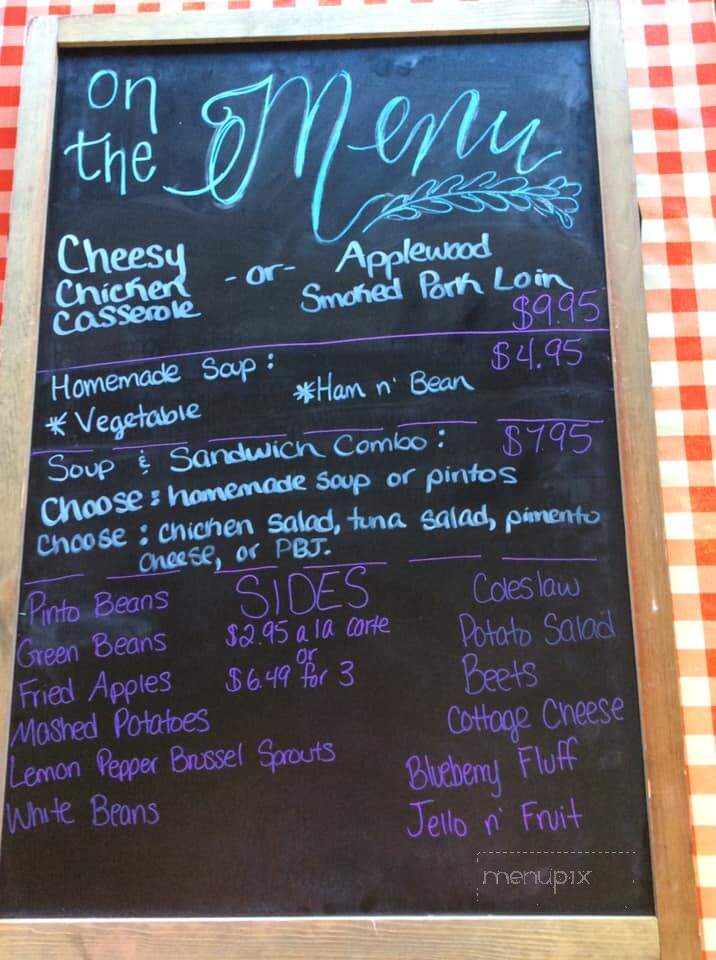 on
the Menu
Cheesy
Chicken
Casserole
- or -
Applewood
Smoked Pork Loin
$9.95
Homemade Soup: $4.95
* Vegetable *Ham n' Bean
Soup & Sandwich Combo: $7.95
Choose: homemade soup or pintos
Choose: chicken salad, tuna salad, pimento
cheese, or PBJ.
SIDES
$2.95 a la carte
or
$6.49 for 3
Pinto Beans
Green Beans
Fried Apples
Mashed Potatoes
Lemon Pepper Brussel Sprouts
White Beans
Coleslaw
Potato Salad
Beets
Cottage Cheese
Blueberry Fluff
Jello n' Fruit
menupix